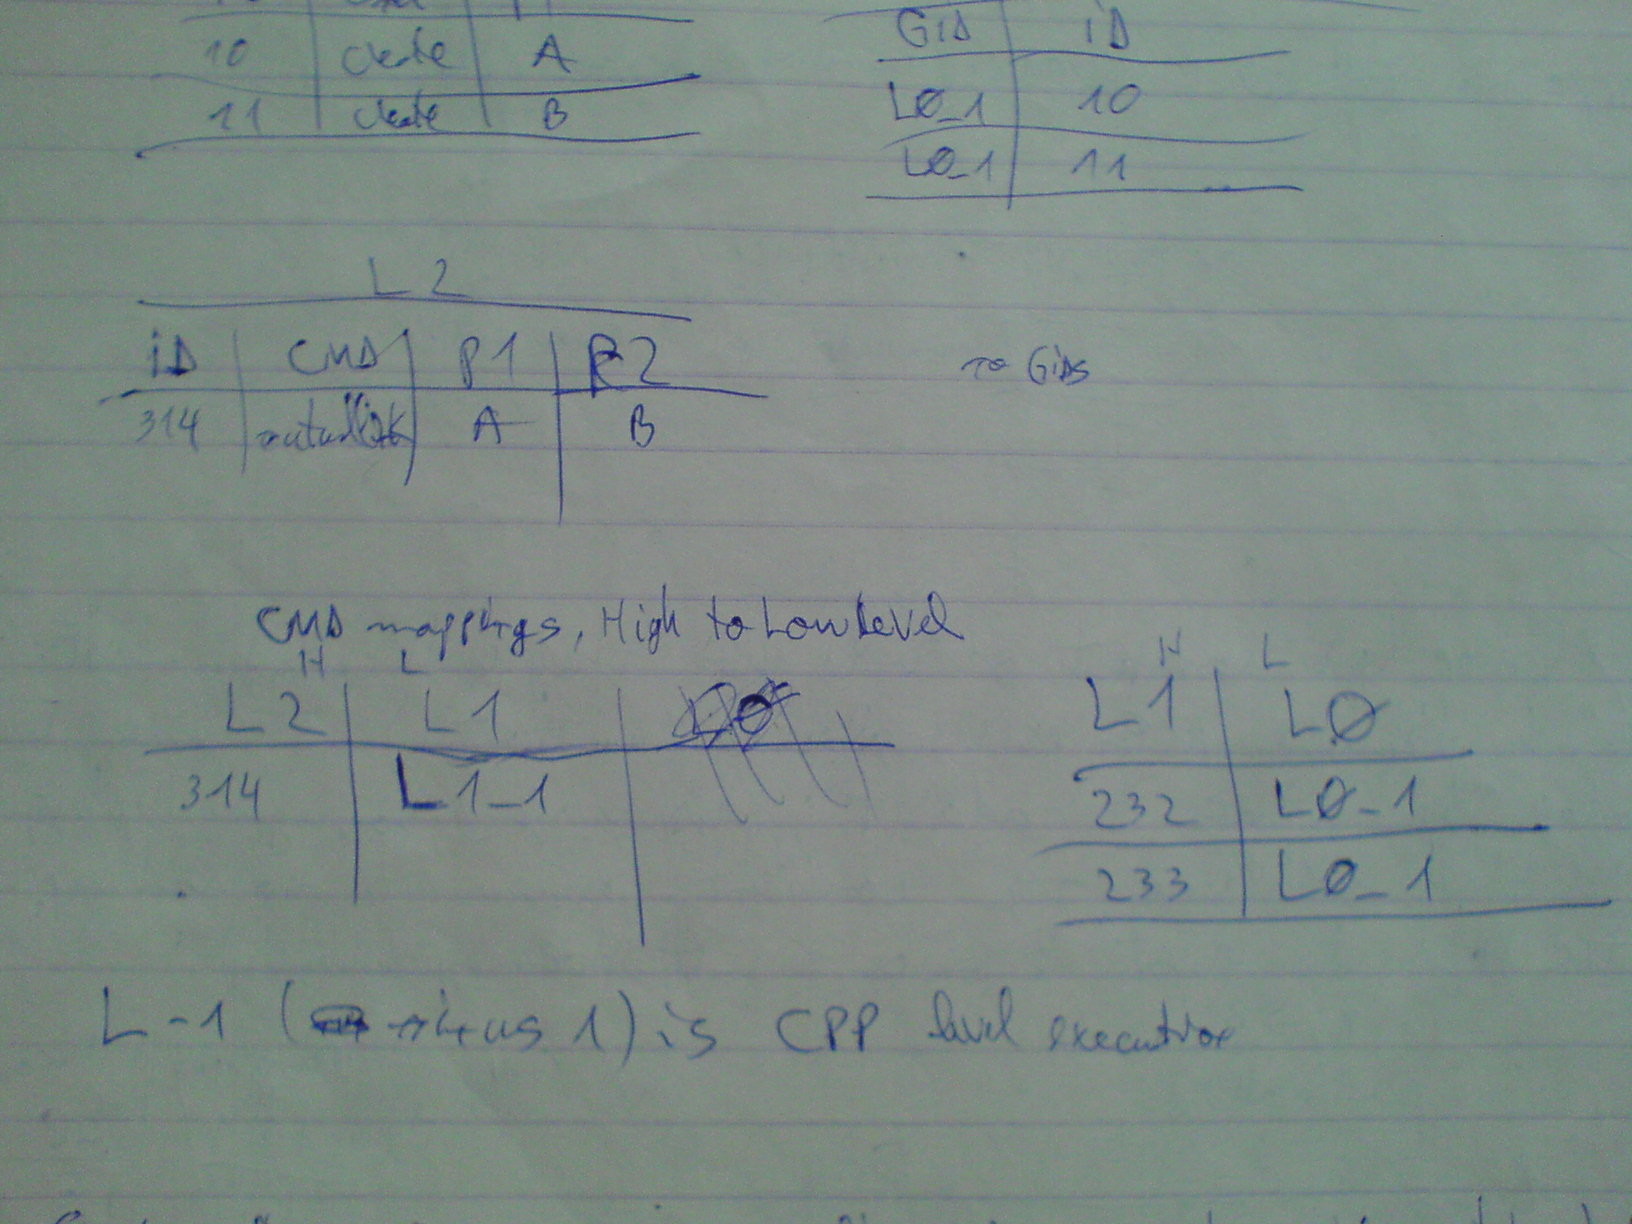 10 | create | A
11 | create | B
GiD | iD
LØ_1 | 10
LØ_1 | 11
L2
iD | CMD | P1 | P2
314 | mutuallink | A | B
no GiDs
CMD mappings, High to Low Level
H L
L2 | L1
314 | L1_1
H L
L1 | LØ
232 | LØ_1
233 | LØ_1
L-1 (minus 1) is CPP level execution